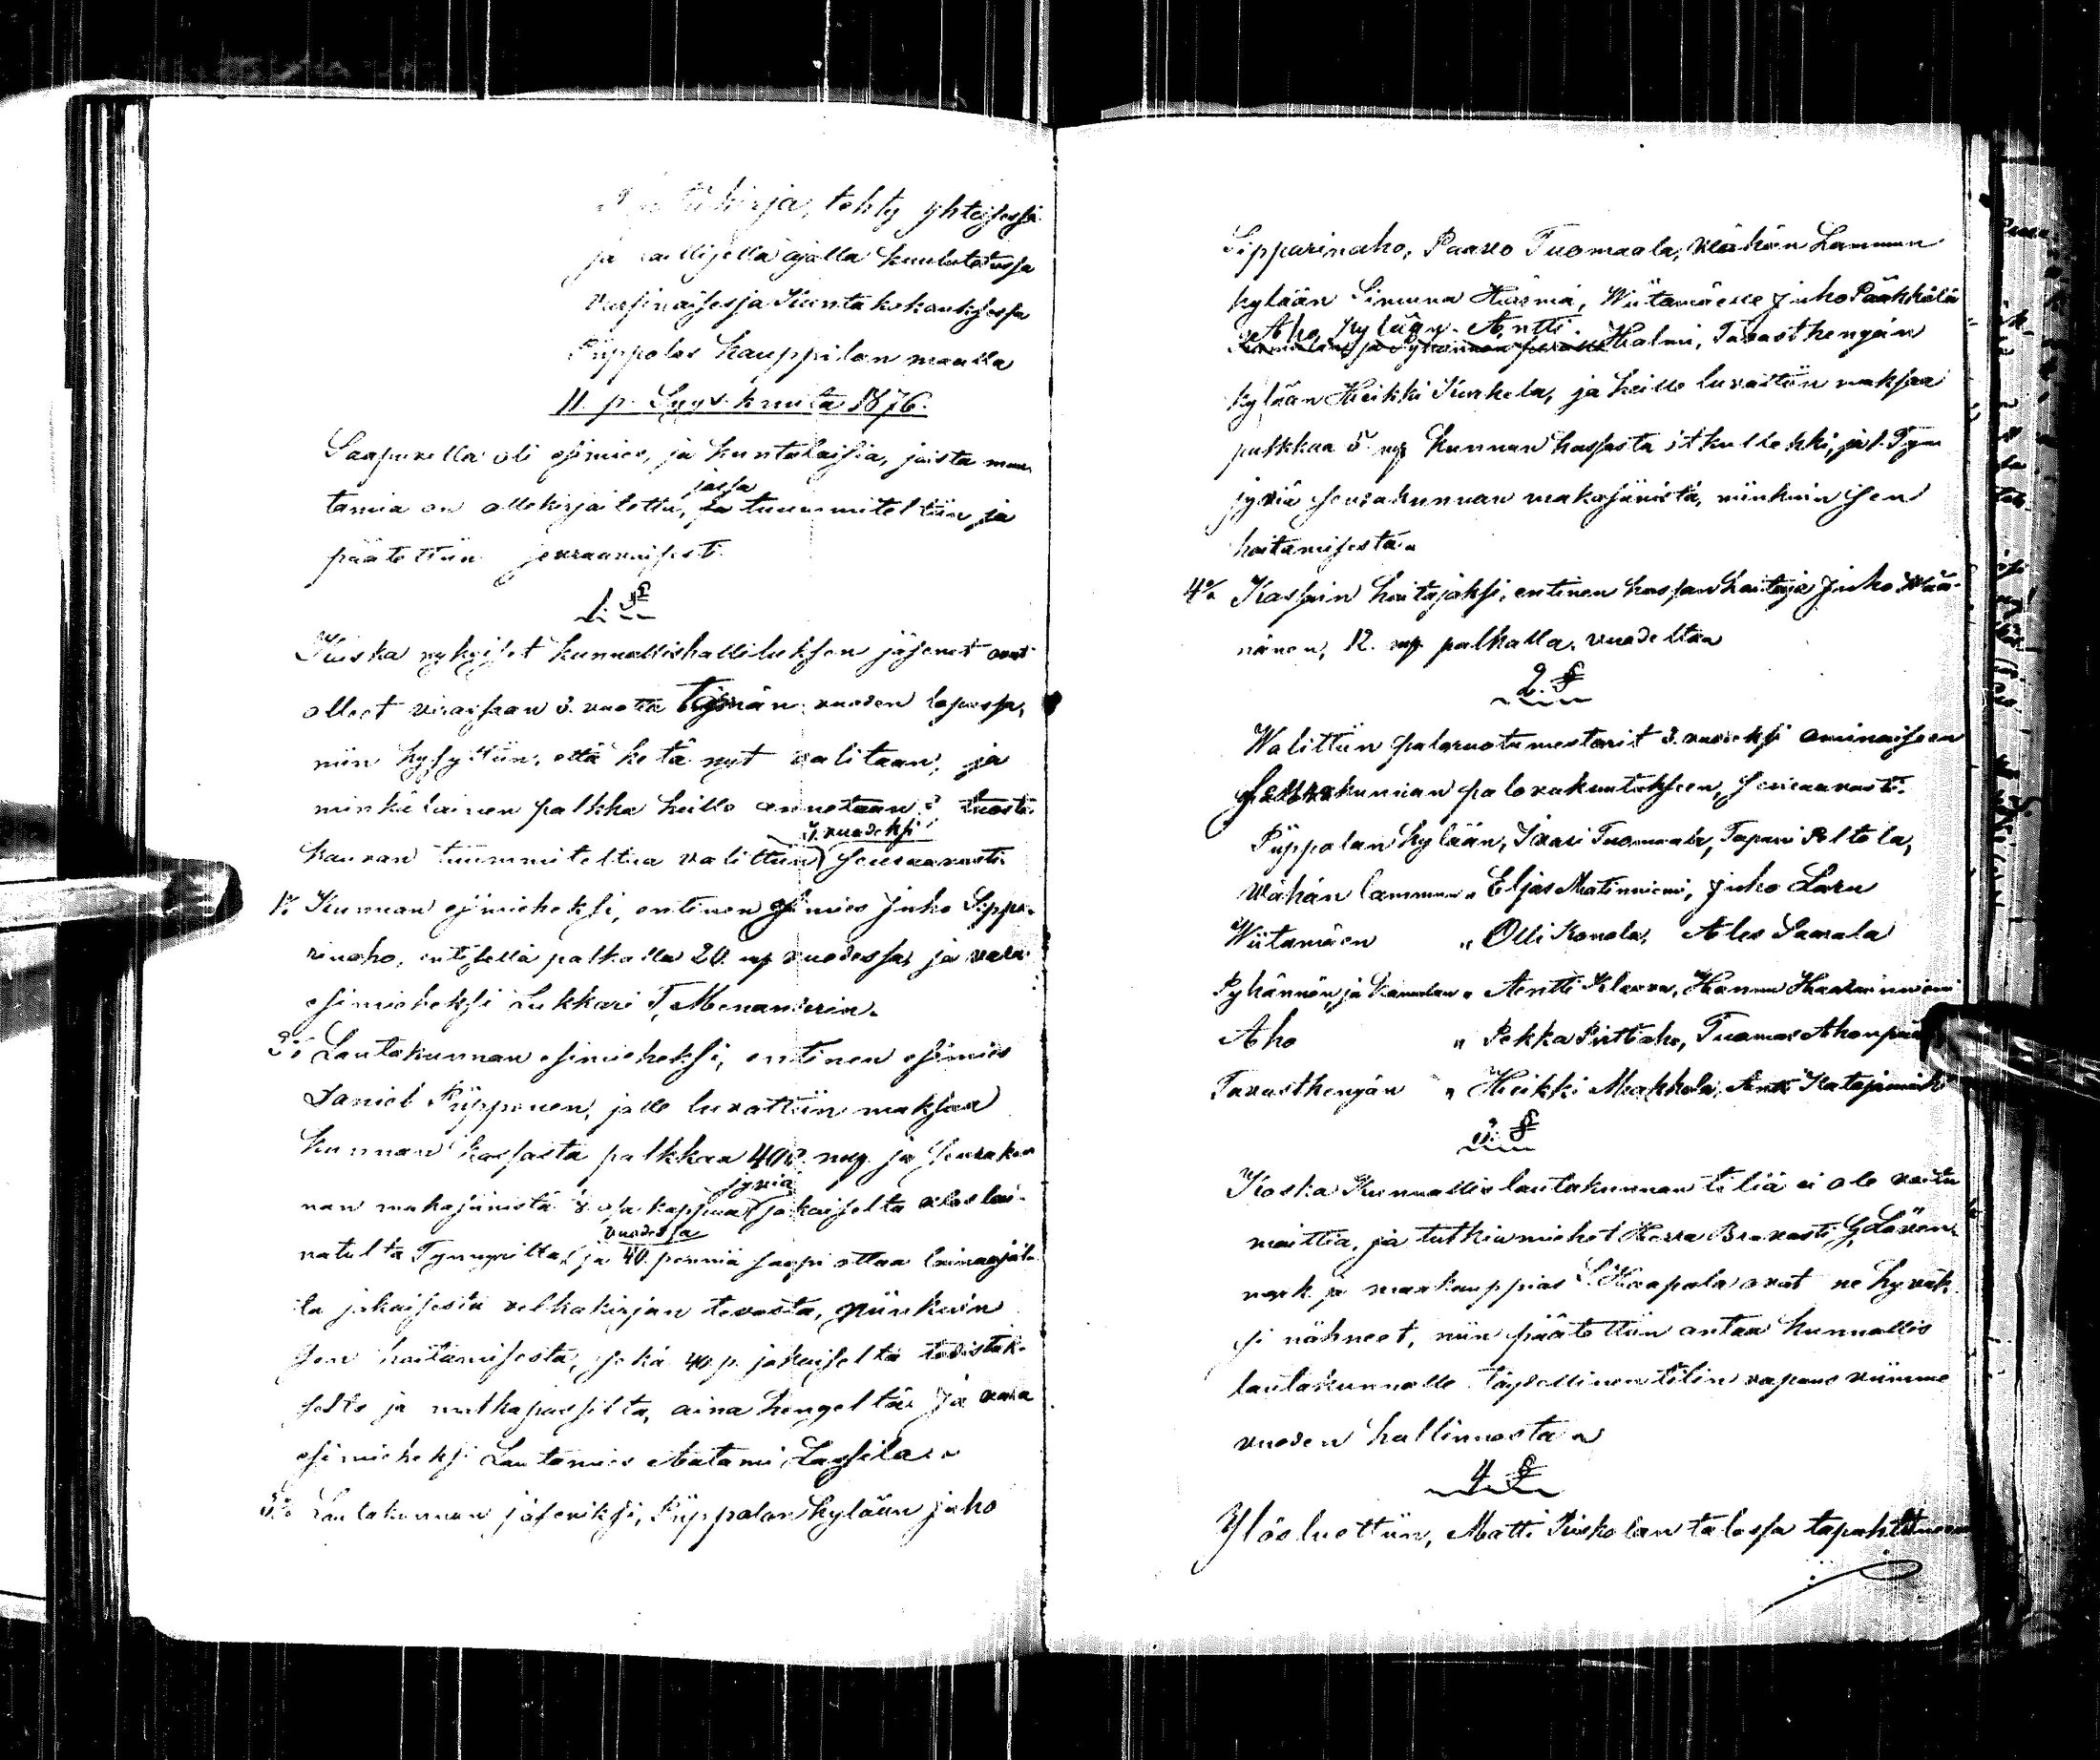 kirja, tehty yhteisessä
ja laillisella ajalla kuulutetussa
Varsinaisessa Kunta kokouksessa
Piippolas Kauppilan maalla
11. p. Syys-kuuta 1876.
Saapuvilla oli esimies, ja kuntalaisia, joista muu-
tamia on allekirjoitettu, jossa tuummiteltiin ja
päätettiin seuraavaisesti.
1. §
Koska nykyiset kunnallishallituksen jäsenet ovat
olleet virassaan 3. vuotta tämän vuoden lopussa,
niin kysyttiin, että ketä nyt valitaan, ja
minkälainen palkka heille annetaan?
kauvan tuummiteltua valittiin 3. vuodeksi seuraavasti.
1:o Kunnan esimieheksi, entinen esimies Juho Sippa-
rinaho, entisellä palkalla 20. mp vuodessa, ja vara-
esimieheksi Lukkari T. Menanterin.
2:o Lautakunnan esimieheksi, entinen esimies
Daniel Piipponen, jolle luvattiin maksaa
Kunnan kassasta palkkaa 400. mp. ja seurakun
nan makasiinista osa kappaa jyviä jokaiselta ulos lai-
natulta Tynnyriltä, vuodessa ja 40. penniä saapi ottaa lainaajal-
ta jokaisesta velkakirjan teosta, niinkuin
sen hoitamisesta, sekä 40 p. jokaiselta todistuk-
selta ja matkapassilta, aina hengeltä. Ja vara
esimieheksi Lautamies Aatami Lassila.
3:o Lautakunnan jäseniksi, Piippolan kylään Juho
Sipparinaho, Paavo Tuomaala, Vähän Lammun
kylään Simuna Hiismä, Wiitamäelle Juho Pääkkölä
Aho kylään Antti Halmi, Tavasthengän
kylään Heikki Kurkela, ja heille luvattiin maksaa
palkkaa 5 mp Kunnan kassasta itkullekki, ja 1. Tyn
jyviä seurakunnan makasiinista, niinkuin sen
hoitamisesta.
4:o Kassan hoitajaksi, entinen kassan hoitaja Juho Wää-
nänen, 12. mp. palkalla, vuodelta
2. §
Walittiin paloruotumestarit 3. vuodeksi
kunnan palovakuutukseen, seuraavasti.
Piippolan kylään, Kaari Tuomaala, Tapani Peltola,
Wähän lammun „ Eljas Matinniemi, Juho Laru
Wiitamäen „ Olli Konola, Ales Paavola
Pyhännön ja „ Antti Klaara, Hannu
Aho „ Pekka Pirttiaho, Tuomas Ahonpää
Tavasthengän „ Heikki Makkola, Antti Katajamäki
3. §
Koska Kunnallis lautakunnan tiliä ei ole voitu
moittia, ja tutkiamiehet Herra Brovasti G. Löven-
mark ja maakauppias S. Haapala ovat ne hyväk-
si nähneet, niin päätettiin antaa kunnallis
lautakunnalle täydellinen tilin vapaus viimme
vuoden hallinnosta.
4. §
Ylösluettiin, Matti Kiiskolan talossa tapahtuneen